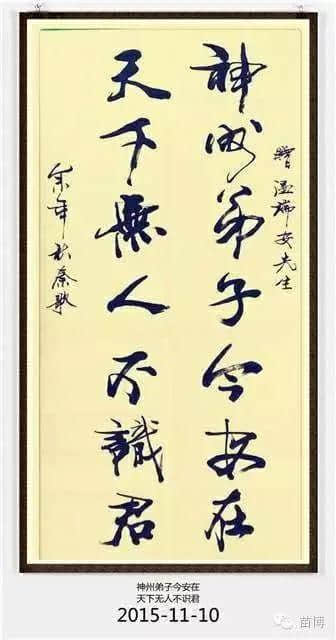 贈溫瑞安先生
神州弟子今安在
天下無人不識君
神州弟子今安在
天下无人不识君
2015-11-10
苗博